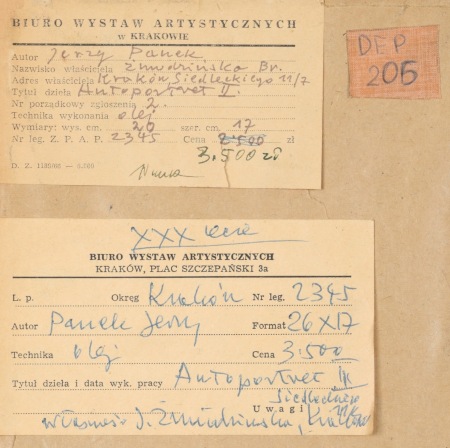 BIURO WYSTAW ARTYSTYCZNYCH
w KRAKOWIE
Autor Jerzy Panek
Nazwisko właściciela Żmudzińska Br.
Adres właściciela Kraków Siedleckiego 11/7
Tytuł dzieła Autoportret II.
Nr porządkowy zgłoszenia 2.
Technika wykonania olej
Wymiary: wys. cm. 20 szer. cm. 17
Nr leg. Z. P. A. P. 2345 Cena 2500 zł
3.500 zł
D. Z.
DEP
206
XXX lecie
BIURO WYSTAW ARTYSTYCZNYCH
KRAKÓW, PLAC SZCZEPAŃSKI 3a
L. p. Okręg Kraków Nr leg. 2345
Autor Panek Jerzy Format 26X17
Technika olej Cena 3.500
Tytuł dzieła i data wyk. pracy Autoportret II
Siedleckiego
Uwagi
własność J. Żmudzińska, Kraków